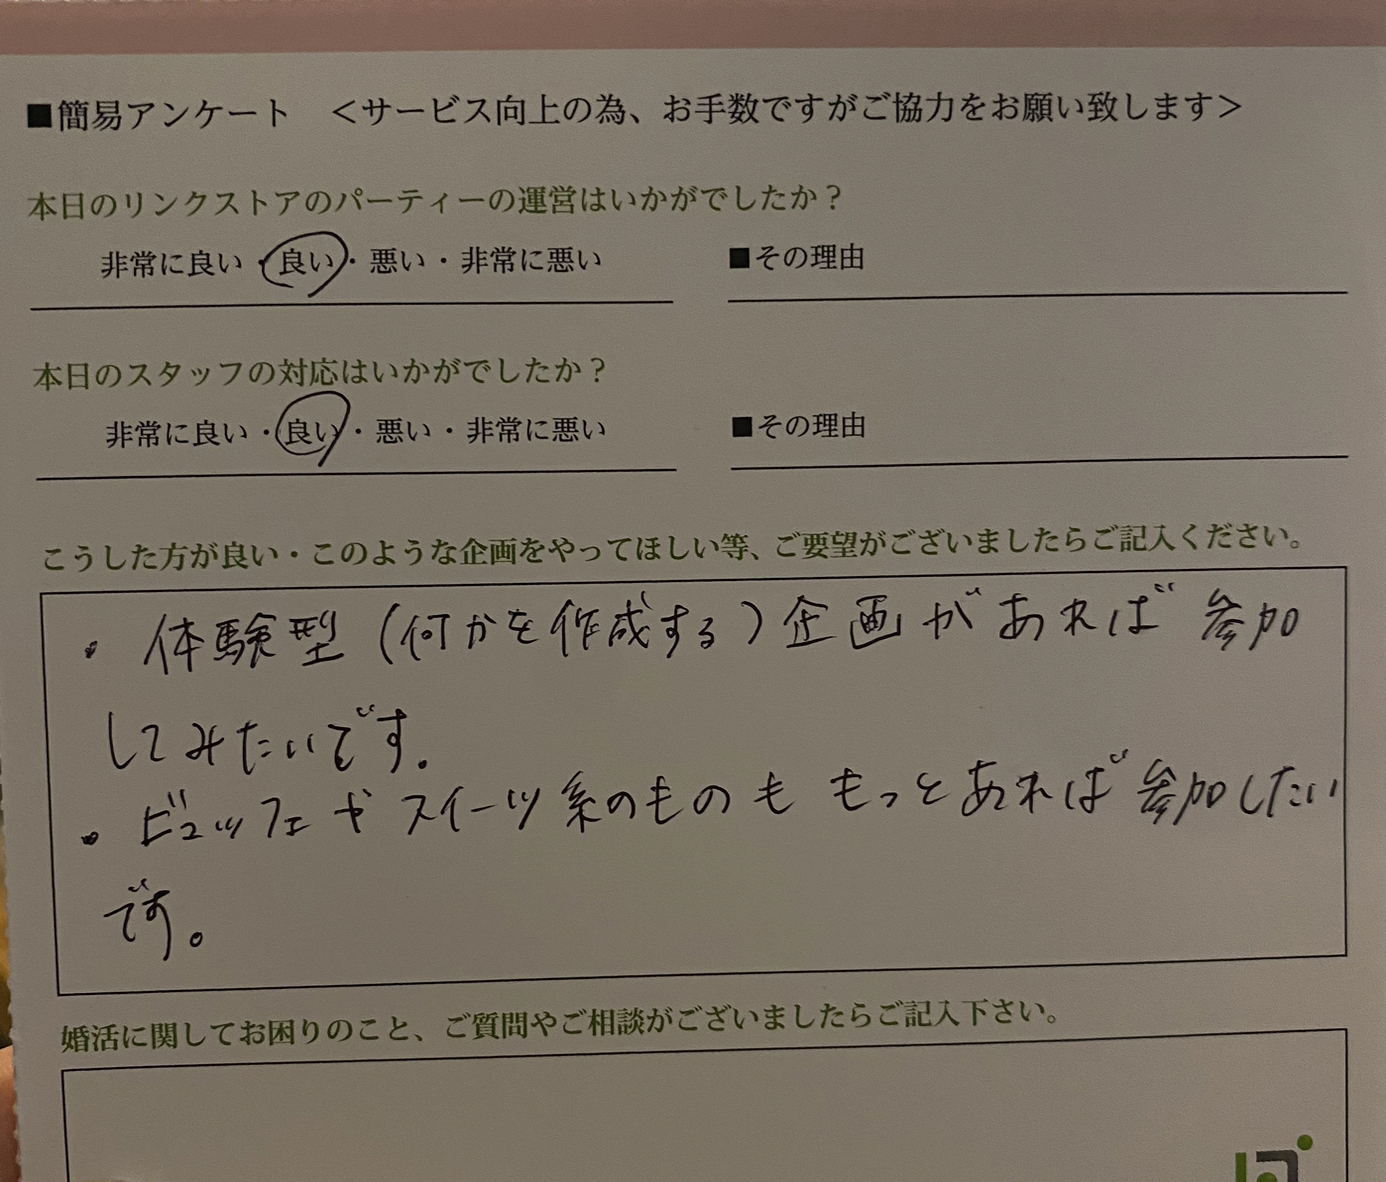 ■簡易アンケート　＜サービス向上の為、お手数ですがご協力をお願い致します＞
本日のリンクストアのパーティーの運営はいかがでしたか？
非常に良い・良い・悪い・非常に悪い　■その理由
本日のスタッフの対応はいかがでしたか？
非常に良い・良い・悪い・非常に悪い　■その理由
こうした方が良い・このような企画をやってほしい等、ご要望がございましたらご記入ください。
・体験型(何かを作成する)企画があれば参加
してみたいです.
・ビュッフェやスイーツ系のものももっとあれば参加したい
です。
婚活に関してお困りのこと、ご質問やご相談がございましたらご記入下さい。